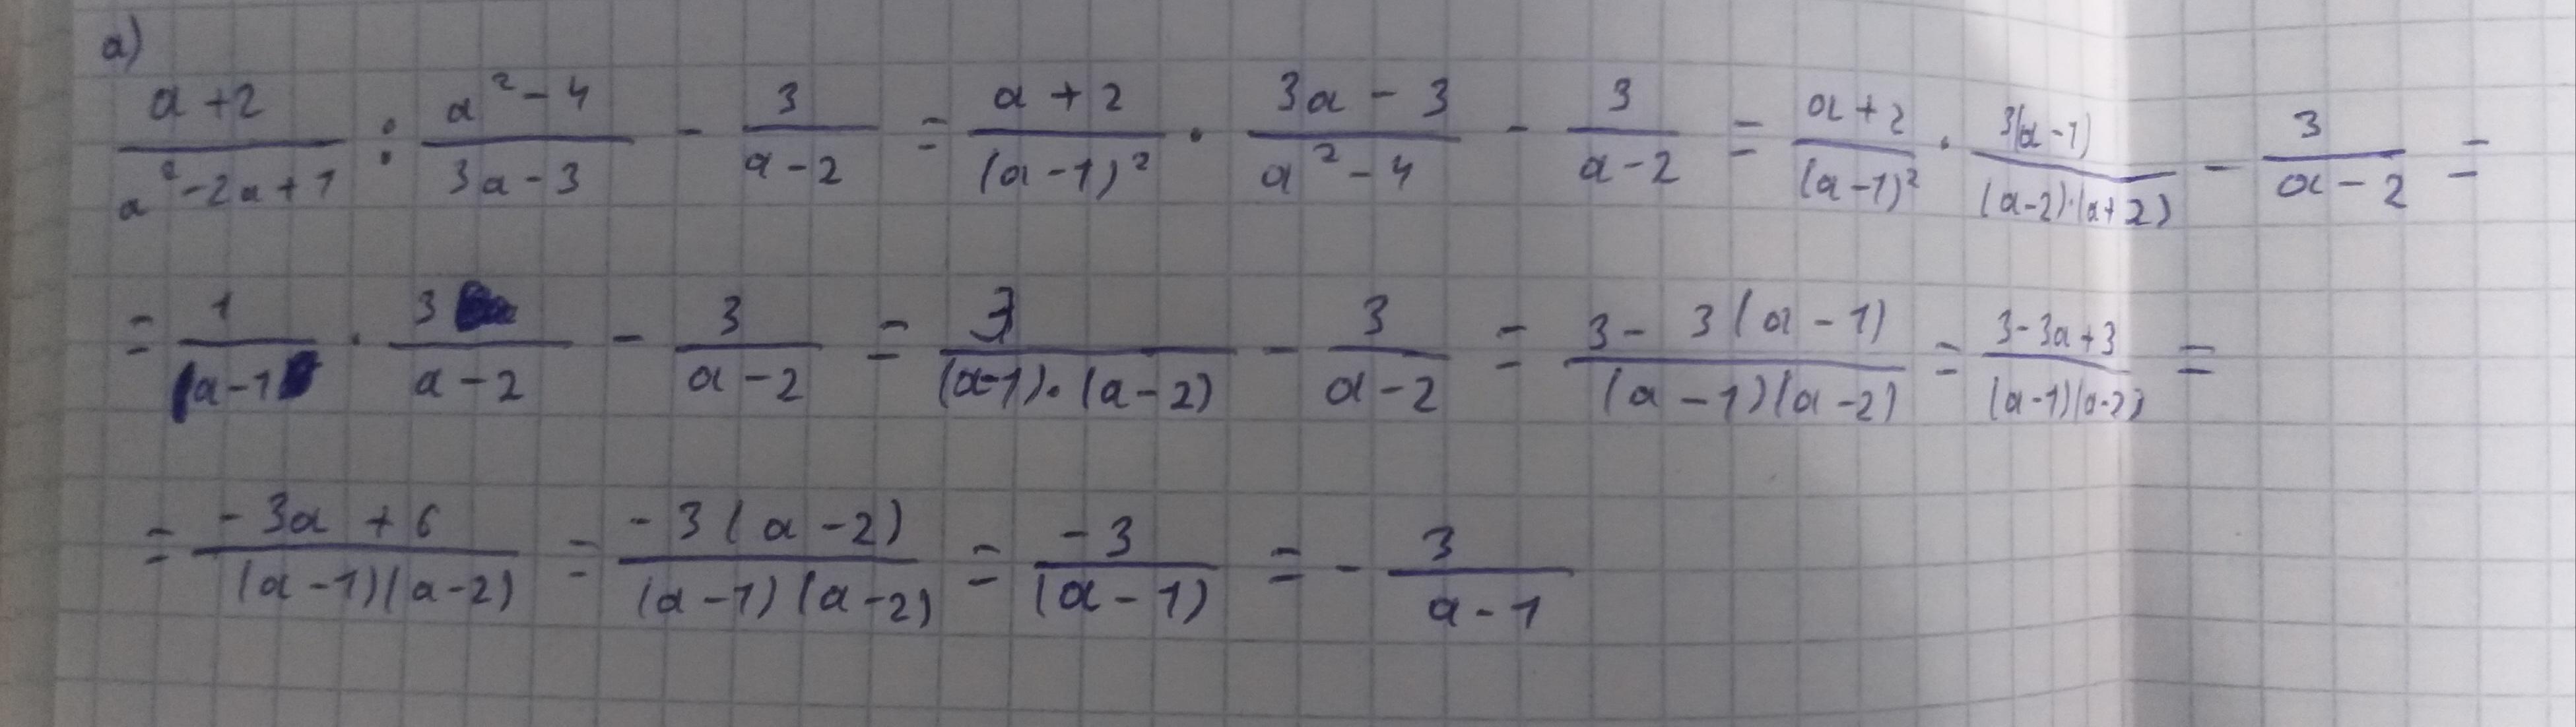 a)
(a+2)/(a²-2a+1) : (a²-4)/(3a-3) - 3/(a-2) = (a+2)/((a-1)²) · (3a-3)/(a²-4) - 3/(a-2) = (a+2)/((a-1)²) · (3(a-1))/((a-2)·(a+2)) - 3/(a-2) =
= 1/(a-1) · 3/(a-2) - 3/(a-2) = 3/((a-1)·(a-2)) - 3/(a-2) = (3-3(a-1))/((a-1)(a-2)) = (3-3a+3)/((a-1)(a-2)) =
= (-3a+6)/((a-1)(a-2)) = (-3(a-2))/((a-1)(a-2)) = (-3)/((a-1)) = - 3/(a-1)